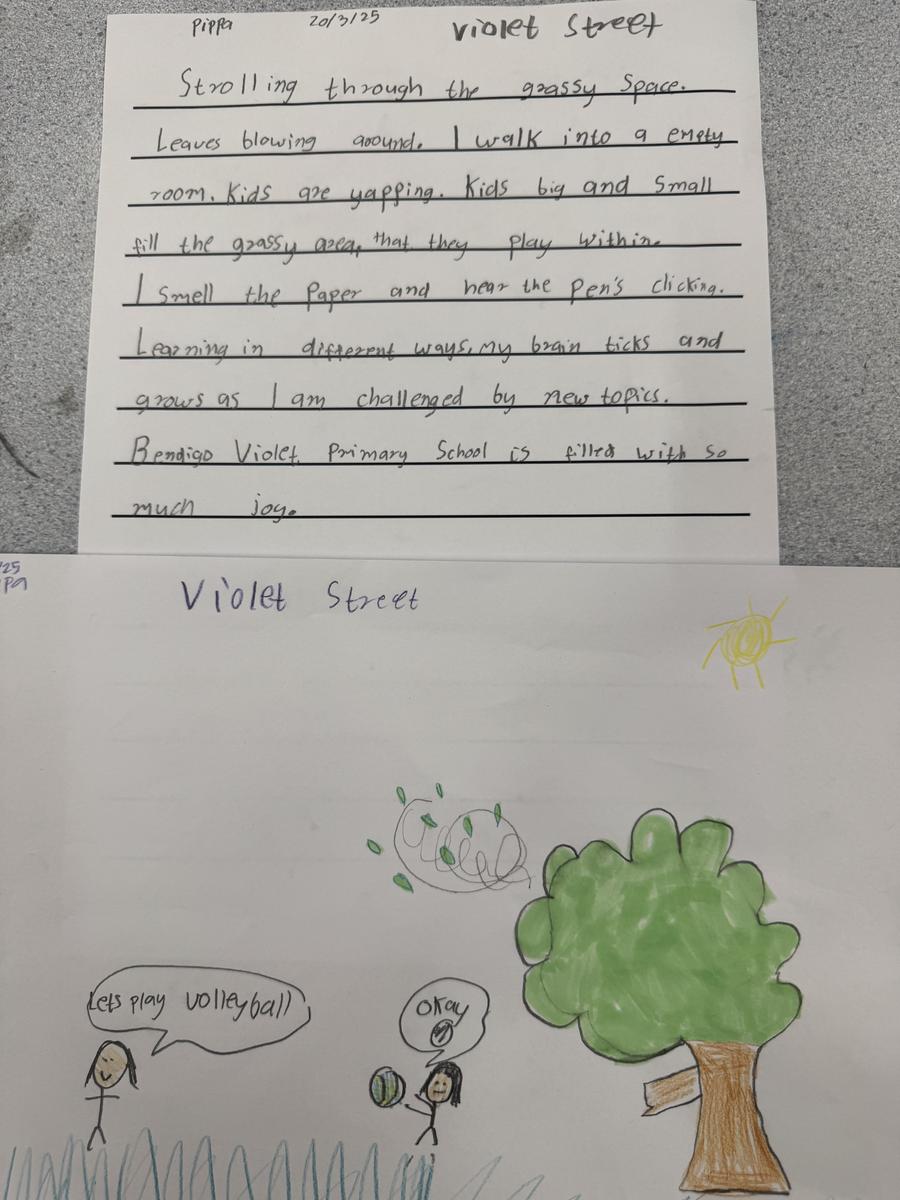 Pippa 20/3/25 Violet Street
Strolling through the grassy space.
Leaves blowing around. I walk into a empty
room. Kids are yapping. Kids big and small
fill the grassy area, that they play within.
I smell the paper and hear the pen's clicking.
Learning in different ways, my brain ticks and
grows as I am challenged by new topics.
Bendigo Violet Primary School is filled with so
much joy.
Violet Street
Lets play volleyball
okay